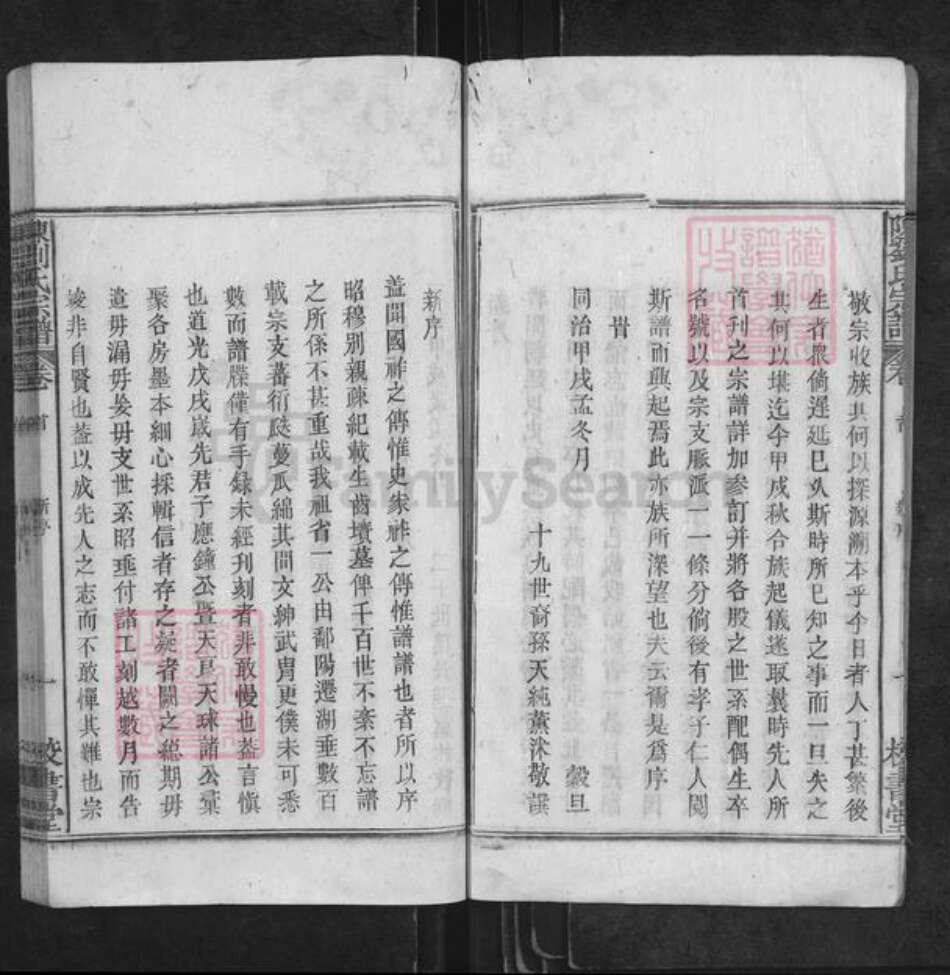 敬宗收族其何以探源溯本乎今日者人丁甚繁後
生者眾倘遲延已久斯時所已知之事而一旦失之
其何以堪迄今甲戍秋合族起儀遂取曩時先人所
首刊之宗譜詳加參訂并將各股之世系配偶生卒
名號以及宗支脈派一一條分倘後有孝子仁人閱
斯譜而興起焉此亦族所深望也夫云爾是為序
旹
同治甲戍孟冬月 穀旦
十九世裔孫天純薰沐敬譔
新序
蓋聞國祚之傳惟史家祚之傳惟譜譜也者所以序
昭穆別親疎紀載生齒墳墓俾千百世不紊不忘譜
之所係不甚重哉我祖省一公由鄱陽遷湖垂數百
載宗支蕃衍瓞蔓瓜綿其間文紳武胄更僕未可悉
數而譜牒僅有手錄未經刊刻者非敢慢也蓋言慎
也道光戊戌歲先君子應鐘公暨天亮天球諸公彙
聚各房墨本細心採輯信者存之疑者闕之總期毋
遺毋漏毋妄毋支世系昭垂付諸工刻越數月而告
竣非自賢也蓋以成先人之志而不敢憚其難也宗
劉氏宗譜 卷首 新序 一 校書堂
FamilySearch